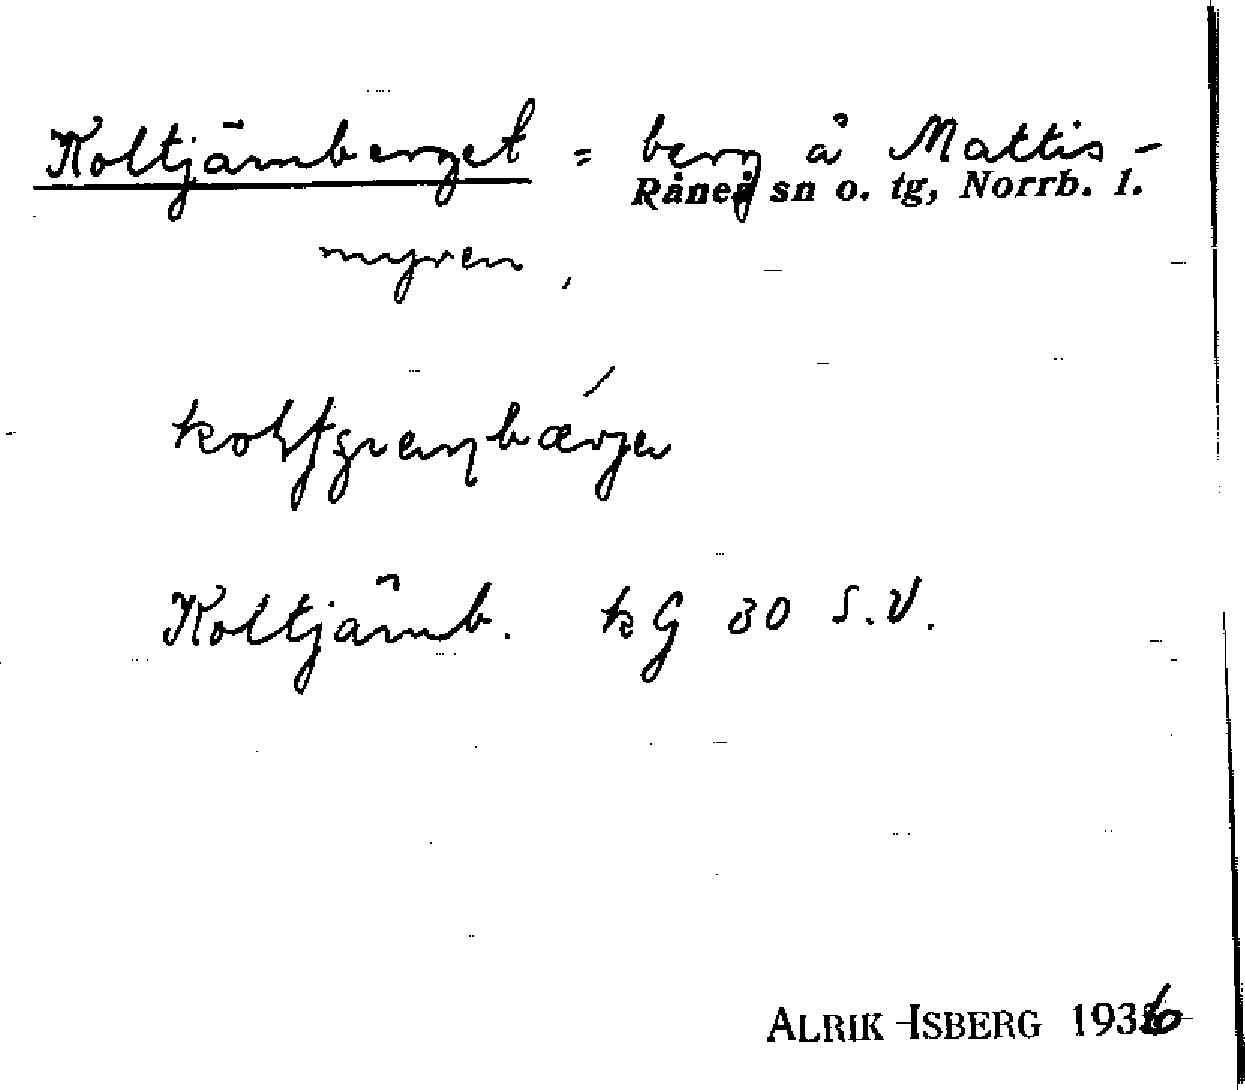 Koltjärnberget = berg å Mattis-
Råneå sn o. tg, Norrb. l.
myren,
Koltjärnb. kG 30 S.V.
ALRIK ISBERG 1936